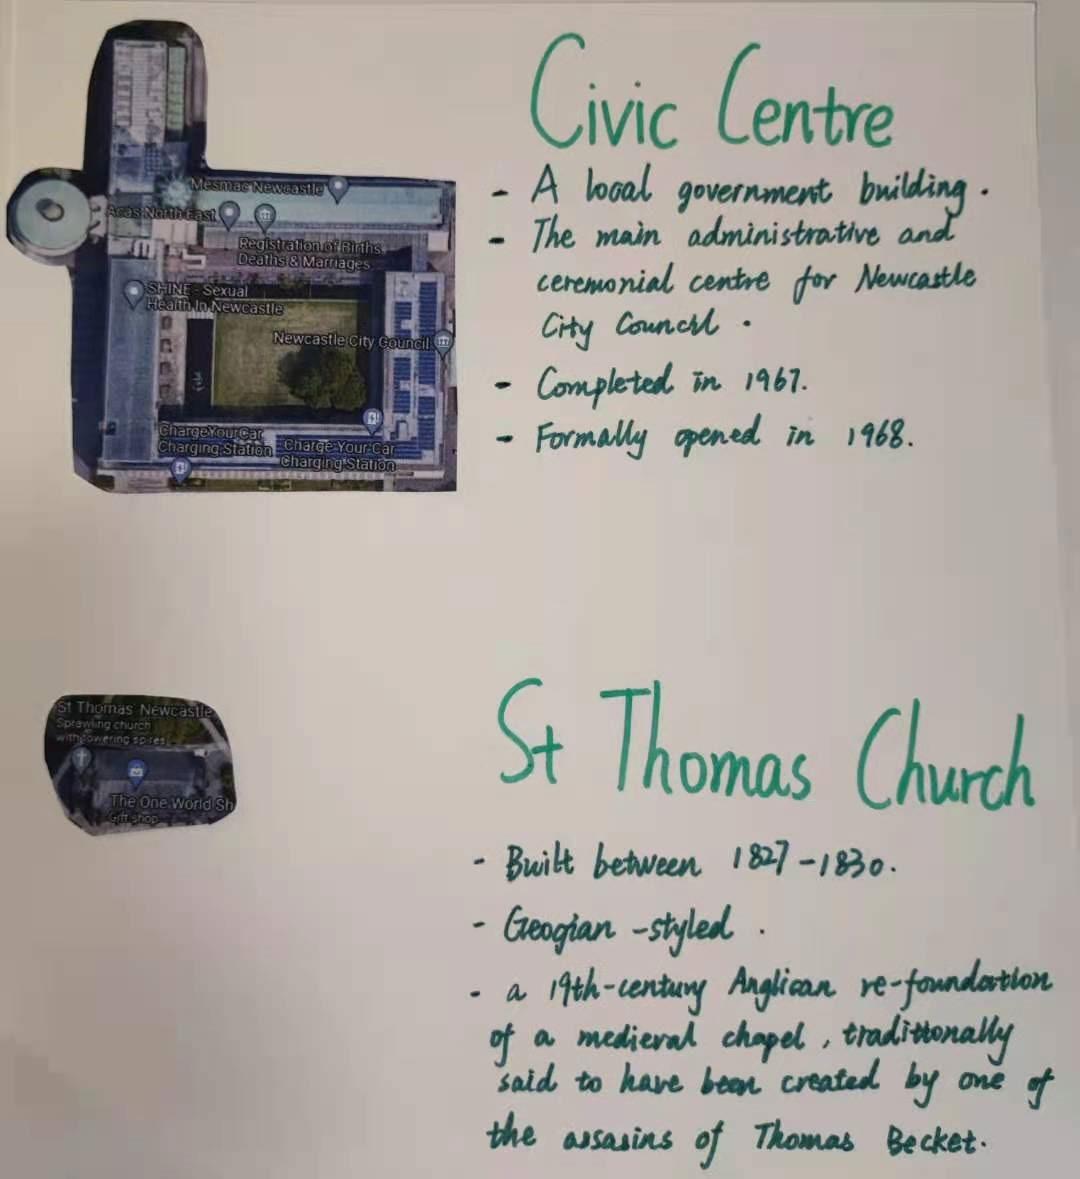 Civic Centre
- A local government building.
- The main administrative and
ceremonial centre for Newcastle
City Council.
- Completed in 1967.
- Formally opened in 1968.
Mesmac Newcastle
Acas North East
Registration of Births,
Deaths & Marriages
SHINE - Sexual
Health In Newcastle
Newcastle City Council
ChargeYourCar
Charging Station
Charge Your Car
Charging Station
St Thomas Church
- Built between 1827-1830.
- Geogian-styled.
- a 19th-century Anglican re-foundation
of a medieval chapel, traditionally
said to have been created by one of
the assasins of Thomas Becket.
St Thomas Newcastle
Sprawling church
with towering spires
The One World Sh
Gift shop